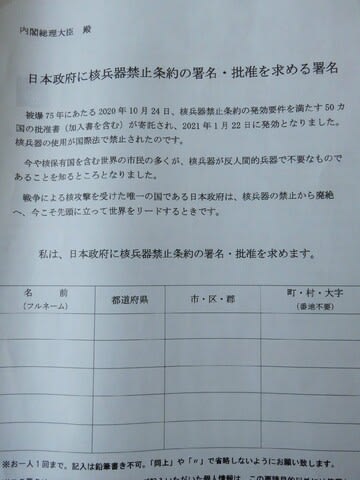 内閣総理大臣 殿
日本政府に核兵器禁止条約の署名・批准を求める署名
被爆75年にあたる2020年10月24日、核兵器禁止条約の発効要件を満たす50カ
国の批准書（加入書を含む）が寄託され、2021年1月22日に発効となりました。
核兵器の使用が国際法で禁止されたのです。
今や核保有国を含む世界の市民の多くが、核兵器が反人間的兵器で不要なもので
あることを知るところとなりました。
戦争による核攻撃を受けた唯一の国である日本政府は、核兵器の禁止から廃絶
へ、今こそ先頭に立って世界をリードするときです。
私は、日本政府に核兵器禁止条約の署名・批准を求めます。
名 前 都道府県 市・区・郡 町・村・大字
（フルネーム） （番地不要）
※お一人1回まで。記入は鉛筆書き不可。「同上」や「〃」で省略しないようにお願い致します。